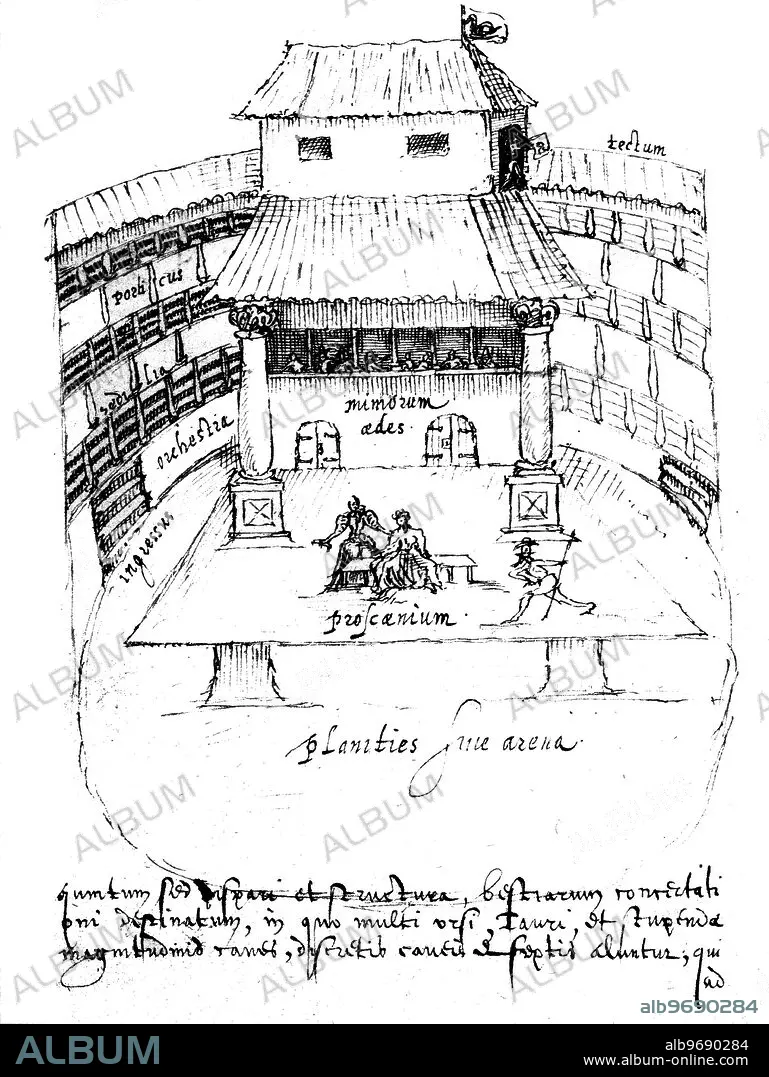 tectum
porticus
sedilia
orchestra
ingressus
mimorum
ædes.
proscænium.
planities siue arena.
quintum sed dispari et structura, bestiarum concertati
oni destinatum, in quo multi vrsi, Tauri, et stupendæ
magnitudinis canes, discretis caueis & septis aluntur, qui
ad
ALBUM
alb9690284
ALBUM
alb9690284
www.album-online.com